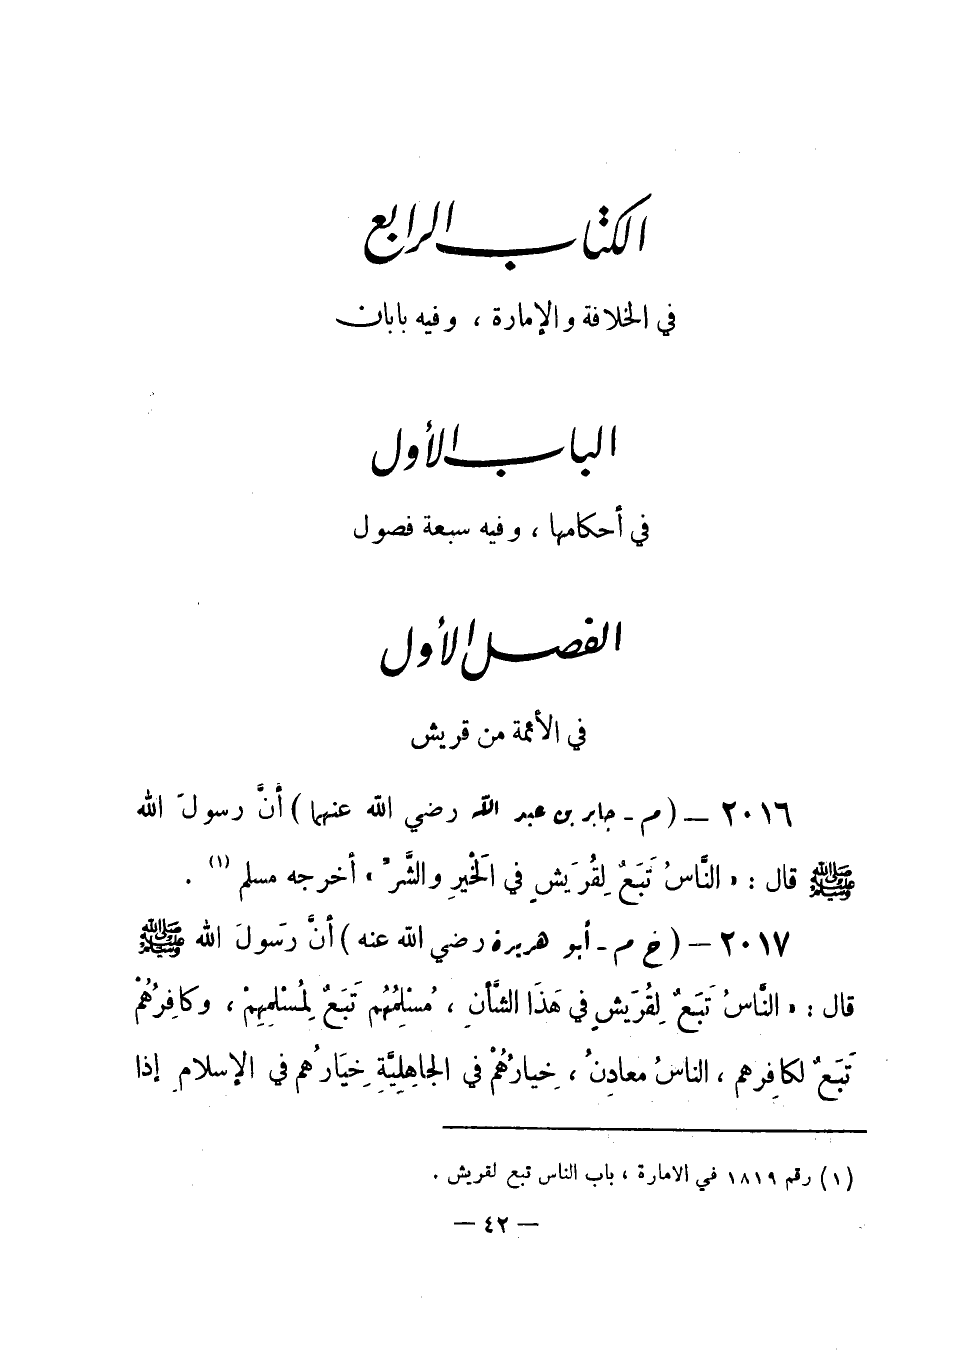 الكتاب الرابع
في الخلافة والإمارة ، وفيه بابان
الباب الأول
في أحكامها ، وفيه سبعة فصول
الفصل الأول
في الأئمة من قريش
٢٠١٦ – ( م - جابر بن عبد الله رضي الله عنهما ) أنَّ رسولَ الله
ﷺ قال : « النَّاسُ تَبَعٌ لِقُرَيشٍ في الْخَيْرِ والشَّرِّ » أخرجه مسلم (١) .
٢٠١٧ – ( خ م - أبو هريرة رضي الله عنه ) أنَّ رَسولَ الله ﷺ
قال : « النَّاسُ تَبَعٌ لِقُرَيشٍ في هَذَا الشَّأنِ ، مُسْلِمُهُم تَبَعٌ لِمُسْلِمِهِمْ ، وكافِرُهُمْ
تَبَعٌ لكافِرهم ، الناسُ معادِنُ ، خيارُهُمْ في الجاهِليَّةِ خِيَارُهم في الإسلامِ إذا
(١) رقم ١٨١٩ في الامارة ، باب الناس تبع لقريش .
– ٤٢ –